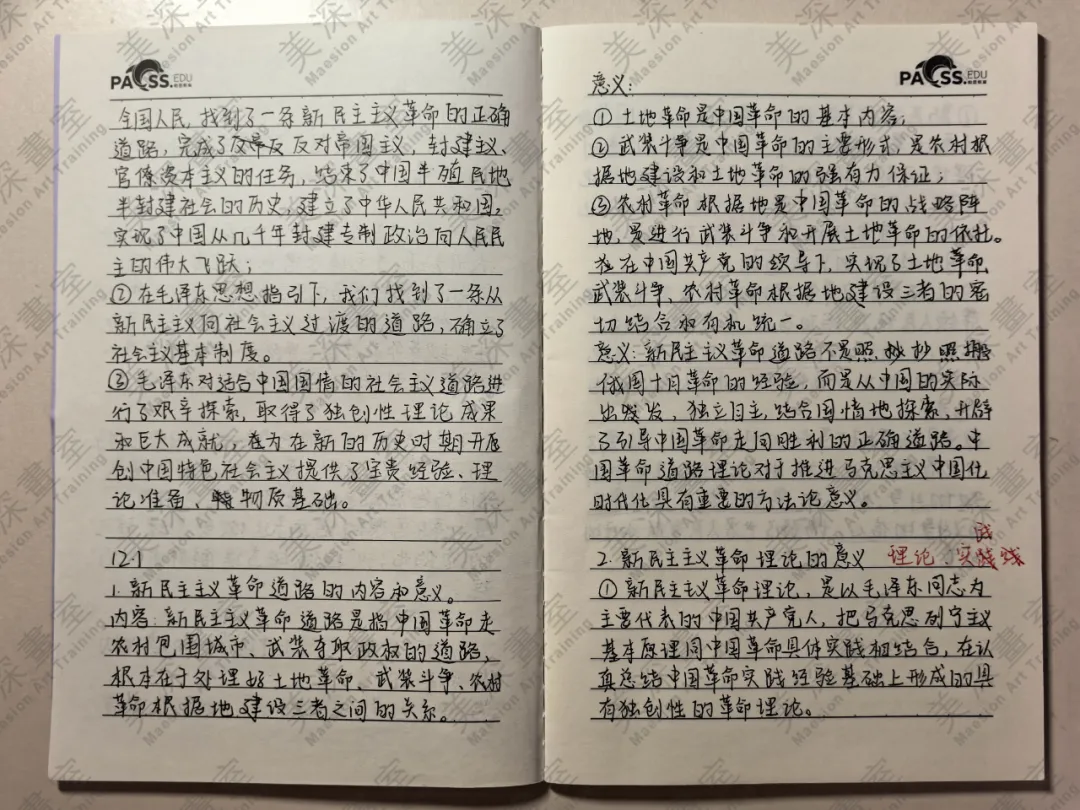 PACSS.EDU
全国人民找到了一条新民主主义革命的正确
道路，完成了反帝反反对帝国主义、封建主义、
官僚资本主义的任务，结束了中国半殖民地
半封建社会的历史，建立了中华人民共和国，
实现了中国从几千年封建专制政治向人民民
主的伟大飞跃；
②在毛泽东思想指引下，我们找到了一条从
新民主主义向社会主义过渡的道路，确立了
社会主义基本制度。
③毛泽东对适合中国国情的社会主义道路进
行了艰辛探索，取得了独创性理论成果
和巨大成就，为在新的历史时期开展
创中国特色社会主义提供了宝贵经验、理
论准备、物质基础。
12.1
1.新民主主义革命道路的内容和意义。
内容：新民主主义革命道路是指中国革命走
农村包围城市、武装夺取政权的道路，
根本在于处理好土地革命、武装斗争、农村
革命根据地建设三者之间的关系。
PACSS.EDU
意义：
①土地革命是中国革命的基本内容；
②武装斗争是中国革命的主要形式，是农村根
据地建设和土地革命的强有力保证；
③农村革命根据地是中国革命的战略阵
地，是进行武装斗争和开展土地革命的依托。
在中国共产党的领导下，实现了土地革命、
武装斗争、农村革命根据地建设三者的密
切结合和有机统一。
意义：新民主主义革命道路不是照抄照搬
俄国十月革命的经验，而是从中国的实际
出发，独立自主，结合国情地探索、开辟
了引导中国革命走向胜利的正确道路。中
国革命道路理论对于推进马克思主义中国化
时代化具有重要的方法论意义。
2.新民主主义革命理论的意义 理论、实践
践
①新民主主义革命理论，是以毛泽东同志为
主要代表的中国共产党人，把马克思列宁主义
基本原理同中国革命具体实践相结合，在认
真总结中国革命实践经验基础上形成的具
有独创性的革命理论。
美深畫室
Maesion Art Training